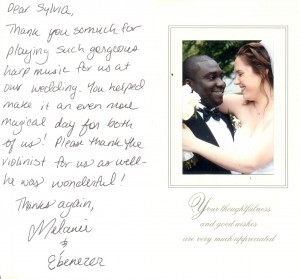 Dear Sylvia,
Thank you so much for
playing such gorgeous
harp music for us at
our wedding. You helped
make it an even more
magical day for both
of us! Please thank the
violinist for us as well-
he was wonderful!
Thanks again,
Melanie
&
Ebenezer
Your thoughtfulness
and good wishes
are very much appreciated